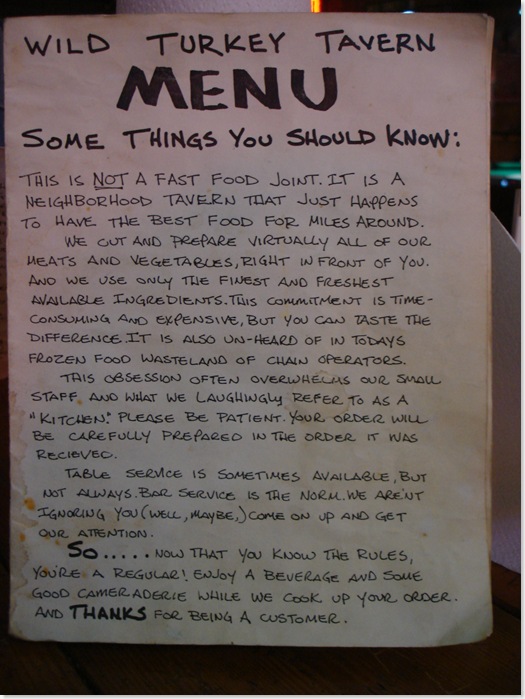 WILD TURKEY TAVERN
MENU
SOME THINGS YOU SHOULD KNOW:
THIS IS NOT A FAST FOOD JOINT. IT IS A
NEIGHBORHOOD TAVERN THAT JUST HAPPENS
TO HAVE THE BEST FOOD FOR MILES AROUND.
WE CUT AND PREPARE VIRTUALLY ALL OF OUR
MEATS AND VEGETABLES, RIGHT IN FRONT OF YOU.
AND WE USE ONLY THE FINEST AND FRESHEST
AVAILABLE INGREDIENTS. THIS COMMITMENT IS TIME-
CONSUMING AND EXPENSIVE, BUT YOU CAN TASTE THE
DIFFERENCE. IT IS ALSO UN-HEARD OF IN TODAYS
FROZEN FOOD WASTELAND OF CHAIN OPERATORS.
THIS OBSESSION OFTEN OVERWHELMS OUR SMALL
STAFF AND WHAT WE LAUGHINGLY REFER TO AS A
"KITCHEN". PLEASE BE PATIENT. YOUR ORDER WILL
BE CAREFULLY PREPARED IN THE ORDER IT WAS
RECIEVED.
TABLE SERVICE IS SOMETIMES AVAILABLE, BUT
NOT ALWAYS. BAR SERVICE IS THE NORM. WE ARE'NT
IGNORING YOU (WELL, MAYBE,) COME ON UP AND GET
OUR ATTENTION.
SO..... NOW THAT YOU KNOW THE RULES,
YOU'RE A REGULAR! ENJOY A BEVERAGE AND SOME
GOOD CAMERADERIE WHILE WE COOK UP YOUR ORDER.
AND THANKS FOR BEING A CUSTOMER.